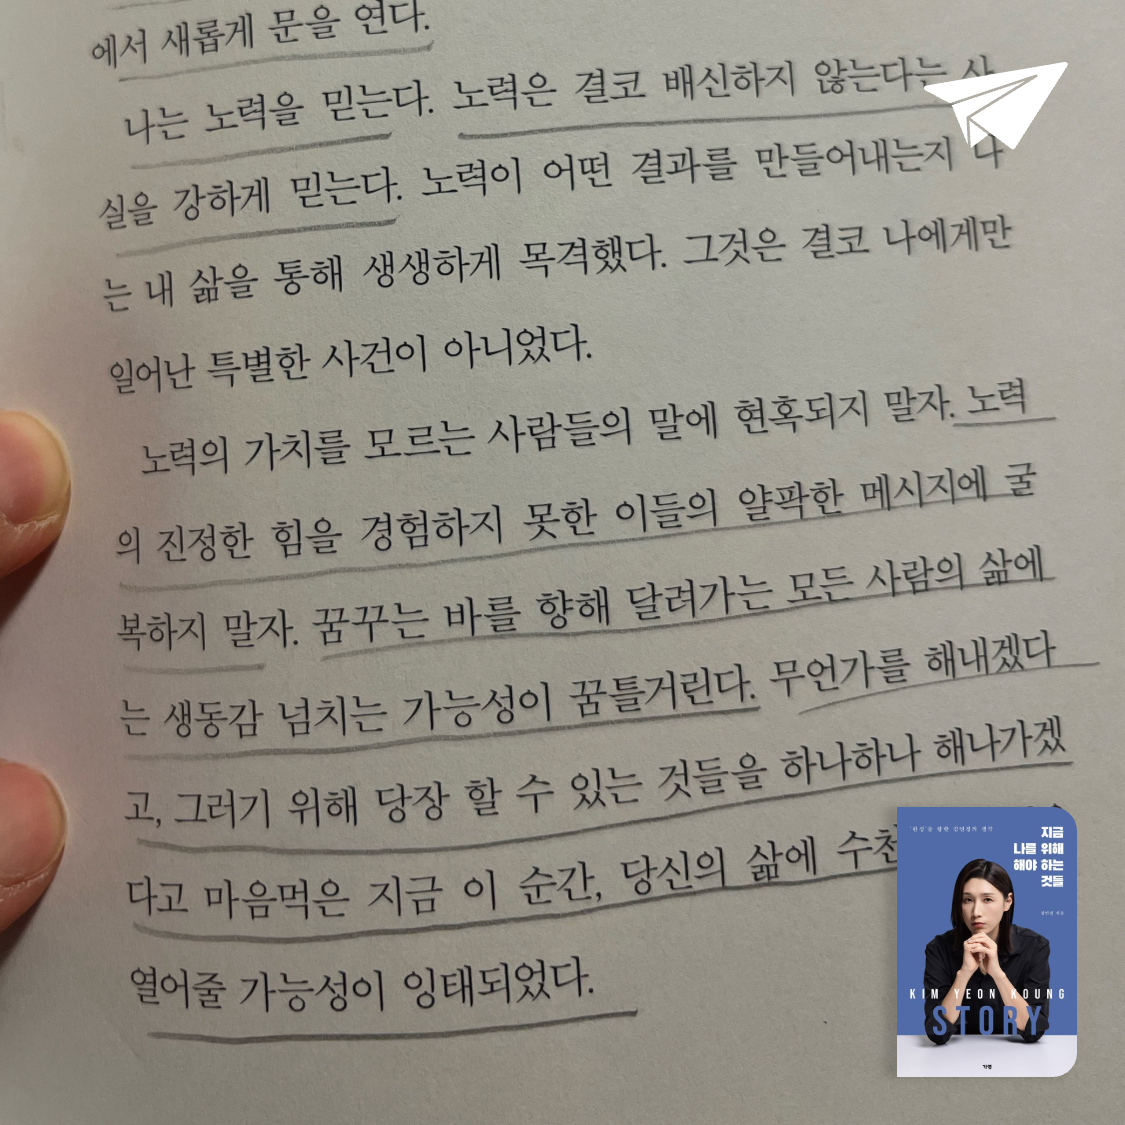 에서 새롭게 문을 연다.
나는 노력을 믿는다. 노력은 결코 배신하지 않는다는
실을 강하게 믿는다. 노력이 어떤 결과를 만들어내는지 나
는 내 삶을 통해 생생하게 목격했다. 그것은 결코 나에게만
일어난 특별한 사건이 아니었다.
노력의 가치를 모르는 사람들의 말에 현혹되지 말자. 노력
의 진정한 힘을 경험하지 못한 이들의 얄팍한 메시지에 굴
복하지 말자. 꿈꾸는 바를 향해 달려가는 모든 사람의 삶에
는 생동감 넘치는 가능성이 꿈틀거린다. 무언가를 해내겠다
고, 그러기 위해 당장 할 수 있는 것들을 하나하나 해나가겠
다고 마음먹은 지금 이 순간, 당신의 삶에
열어줄 가능성이 잉태되었다.
지금
나를 위해
해야 하는
것들
KIM YEON KOUNG
STORY